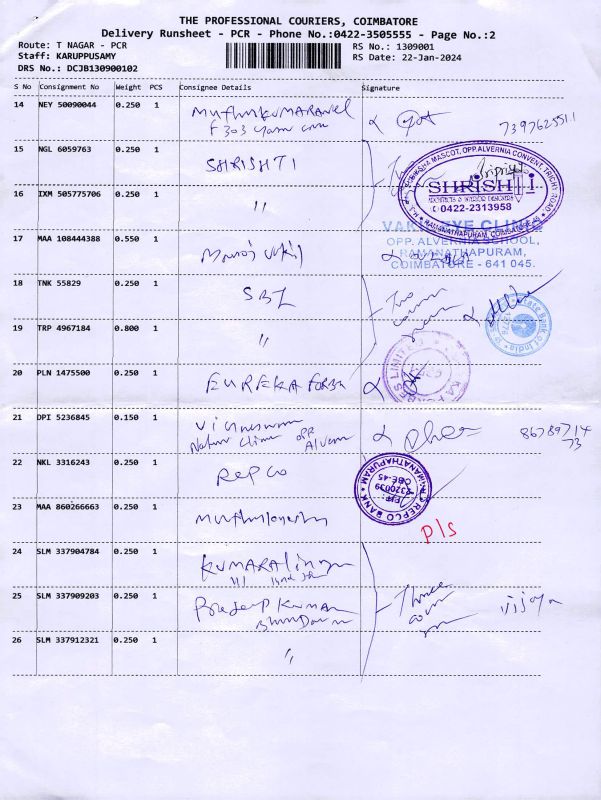 THE PROFESSIONAL COURIERS, COIMBATORE
Delivery Runsheet - PCR - Phone No.:0422-3505555 - Page No.:2
Route: T NAGAR - PCR
RS No.: 1309001
Staff: KARUPPUSAMY
RS Date: 22-Jan-2024
DRS No.: DCJB130900102
S No Consignment No Weight PCS Consignee Details Signature
14 NEY 50090044 0.250 1 Muthukumaravel
F 303
7397625511
15 NGL 6059763 0.250 1 SHRISHTI
OPP.ALVERNIA CONVENT, TRICHY ROAD
SHRISHTI
ARCHITECTS & INTERIOR DESIGNERS
0422-2313958
RAMANATHAPURAM, COIMBATORE
16 IXM 505775706 0.250 1 "
17 MAA 108444388 0.550 1
EYE CLINIC
OPP. ALVERNIA SCHOOL,
RAMANATHAPURAM,
COIMBATORE - 641 045.
18 TNK 55829 0.250 1 SBI
Two
State Bank of India
19 TRP 4967184 0.800 1 "
20 PLN 1475500 0.250 1 EUREKA FORBS
LIMITED
21 DPI 5236845 0.150 1
opp
22 NKL 3316243 0.250 1 REPCO
REPCO BANK
RAMANATHAPURAM
CBE-45
23 MAA 860266663 0.250 1
P/S
24 SLM 337904784 0.250 1 KUMARAlingam
25 SLM 337909203 0.250 1 Pradeep Kumar
Three
vijaya
26 SLM 337912321 0.250 1 "